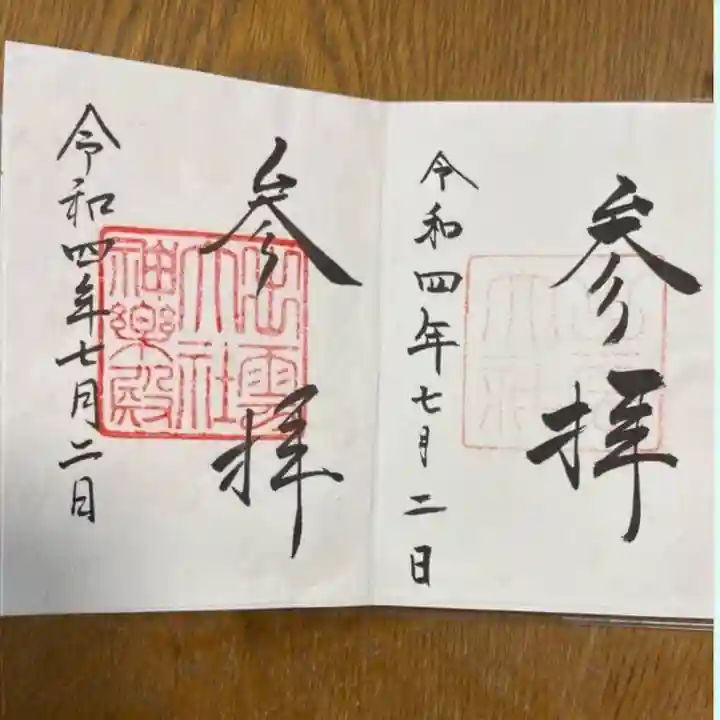 参拝
出雲
大社
参拝
令和四年七月二日
出雲
大社
神楽殿
令和四年七月二日